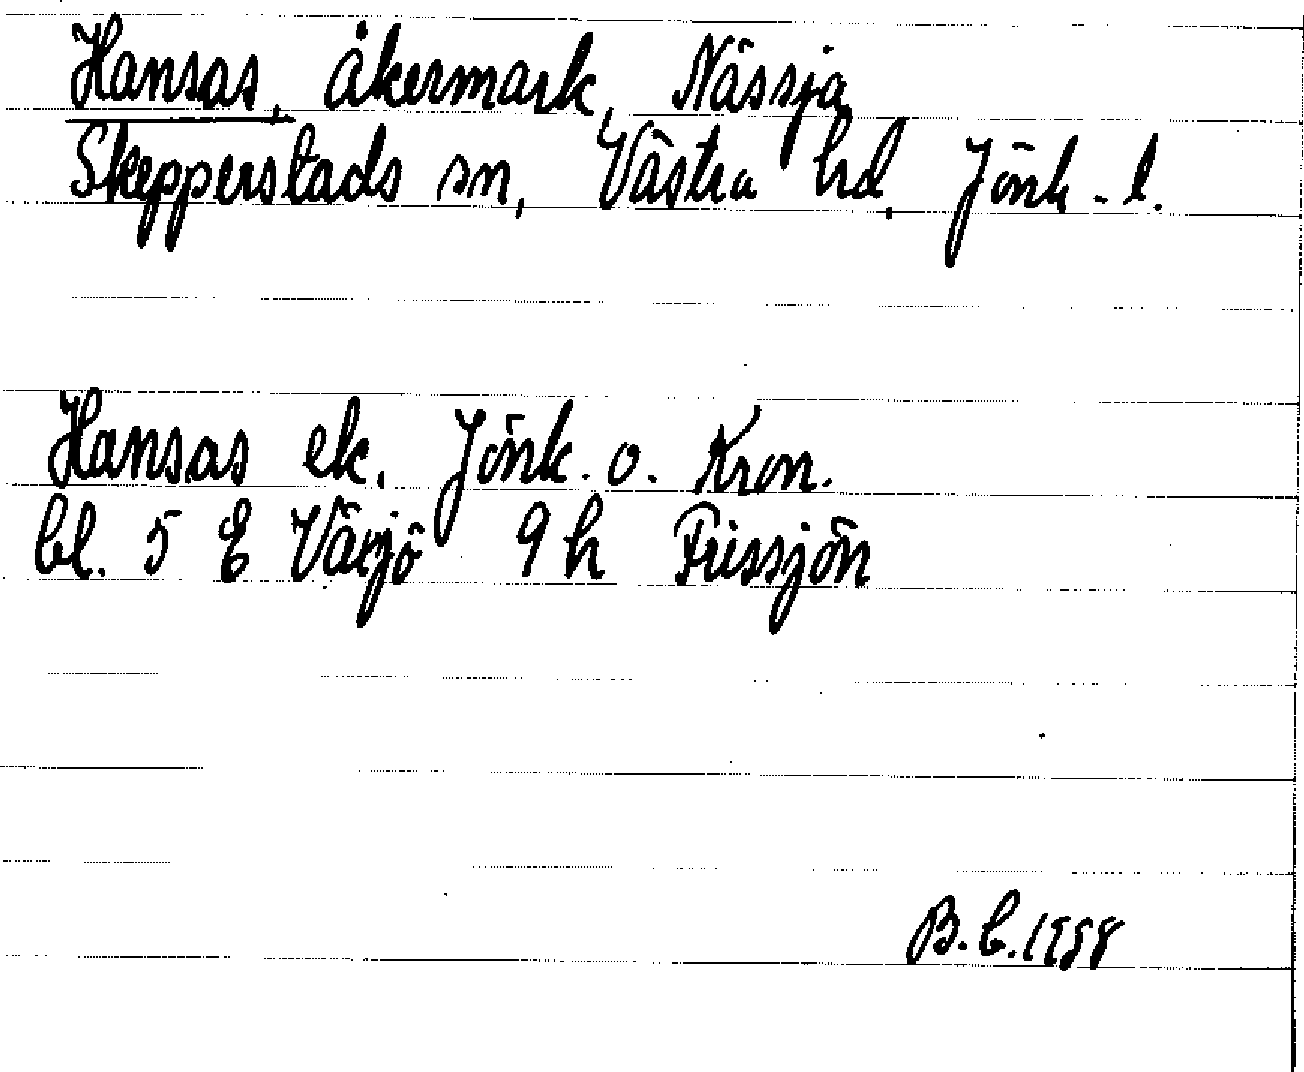 Hansas, åkermark, Nässja
Skepperstads sn, Västra hd, Jönk - l.
Hansas ek. Jönk. o. Kron.
bl. 5 E Värjö 9 h Frissjön
B. C. 1958